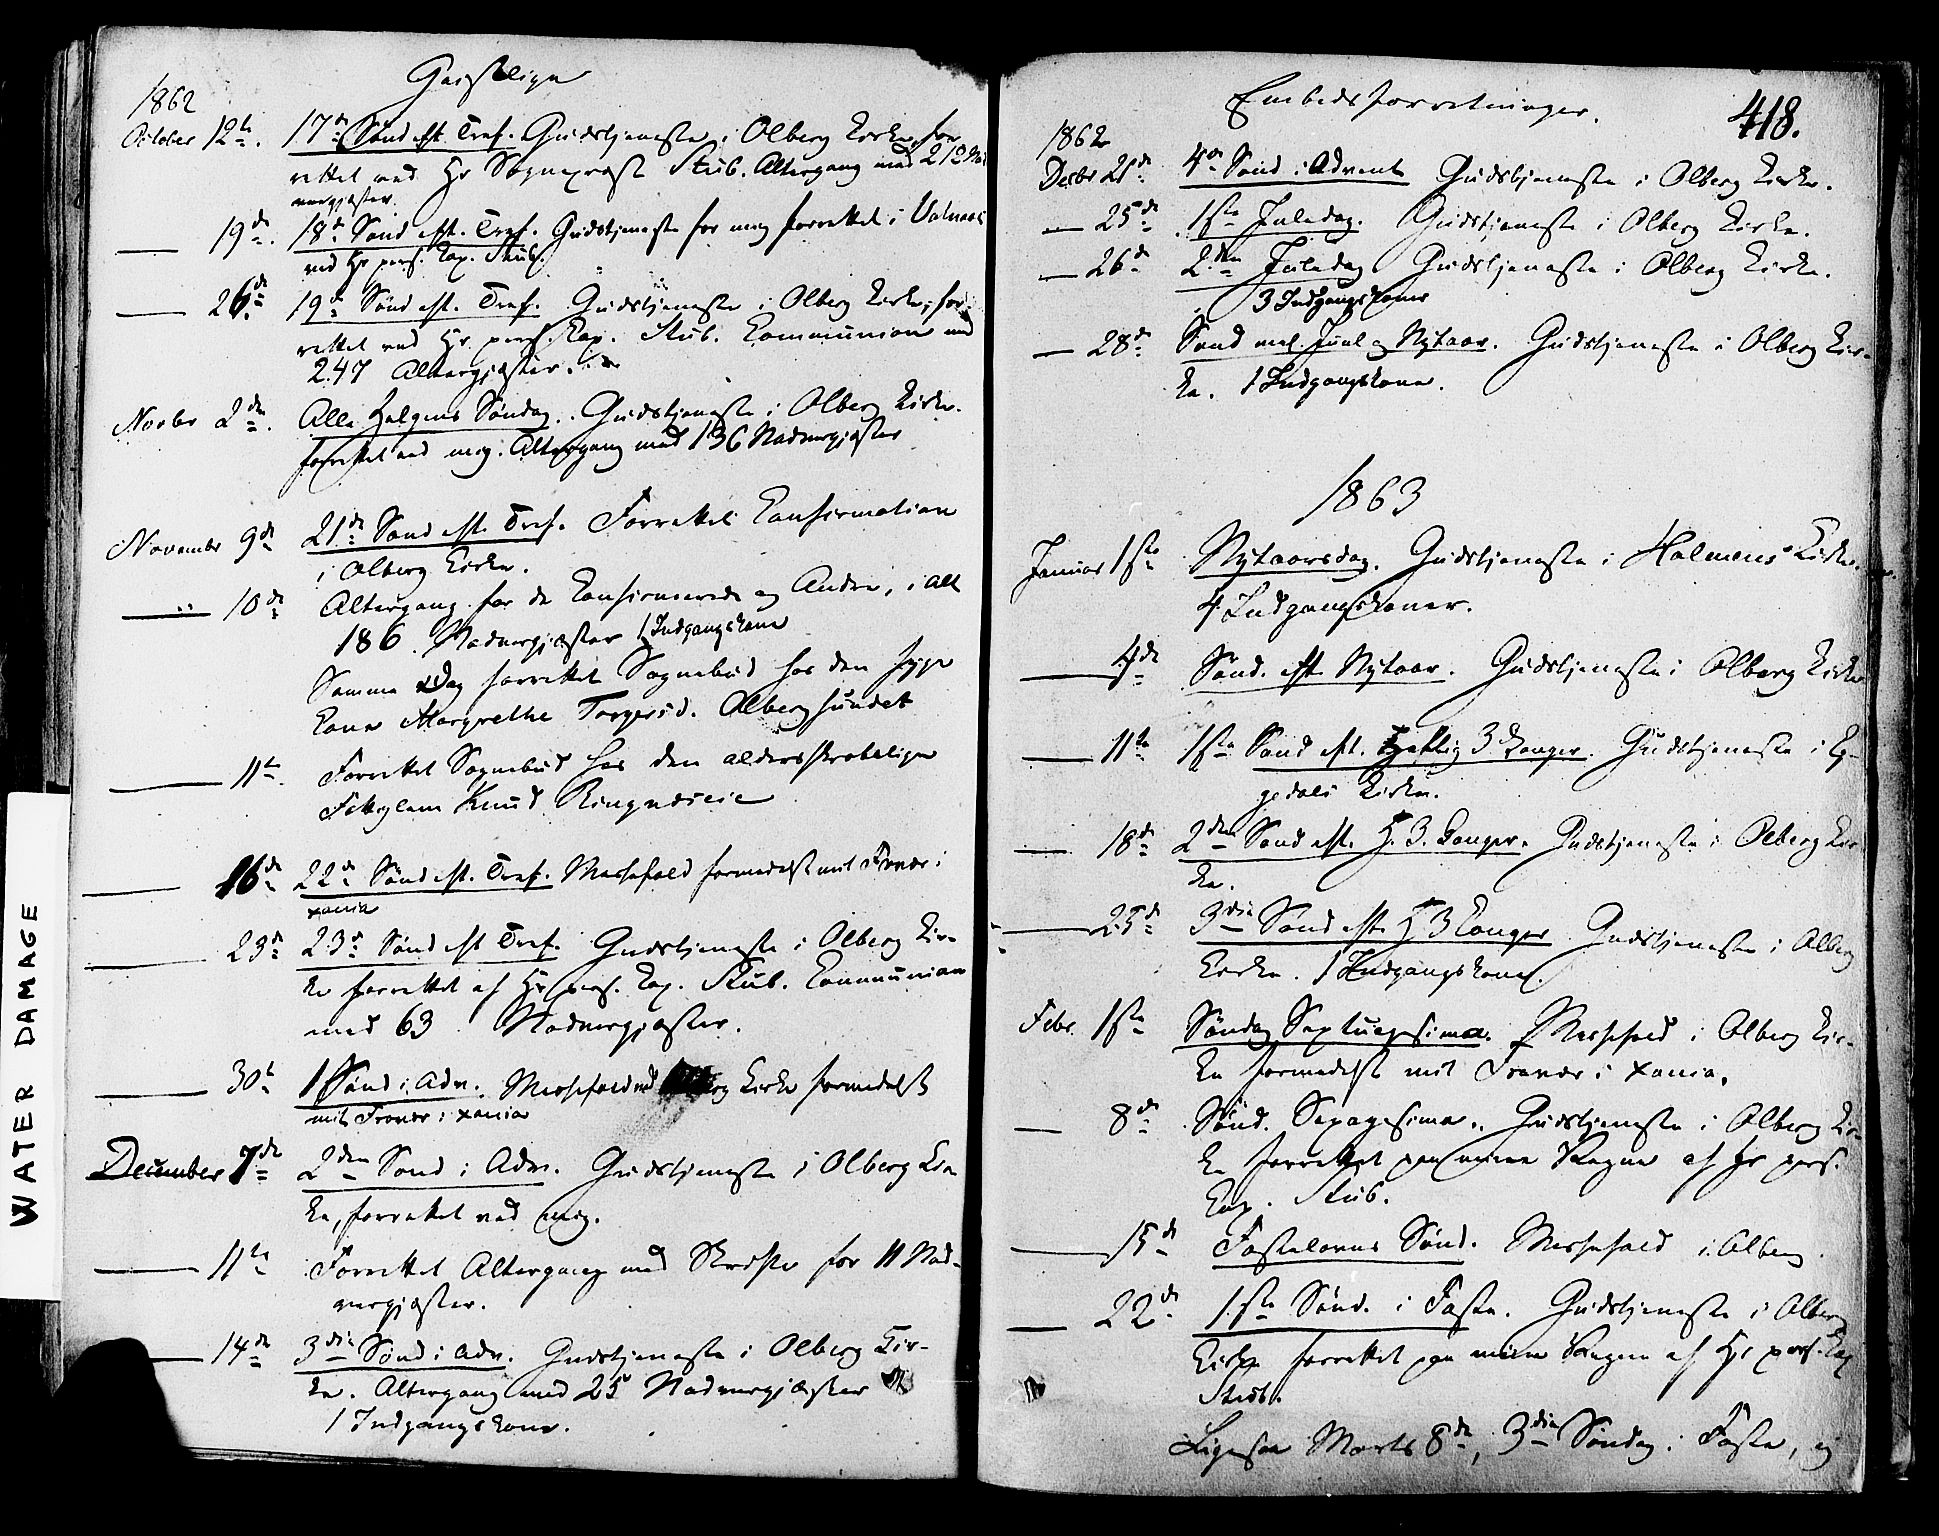 Geistlige
1862
October 12te. 17de Sønd eft. Tref. Gudstjeneste i Olberg Kirke, for-
rettet ved Hr Sogneprest Stub. Altergang med 212 Nad
vergjæster.
19de. 18de Sønd eft. Tref. Gudstjeneste for mig forrettet i
ved Hr pers. Cap. Stub.
26de 19de Sønd eft. Tref. Gudstjeneste i Olberg Kirke, for-
rettet ved Hr. pers. Cap. Stub. Communion med
247 Altergjæster.
Novbr 2den. Alle Helgens Søndag. Gudstjeneste i Olberg Kirke.
forrettet ved mig. Altergang med 136 Nadvergjæster
November 9de 21de Sønd eft. Tref. Forrettet Confirmation
i Olberg Kirke.
10de Altergang for de Confirmerede og Andre, i alt
186 Nadvergjæster 1 Indgangskone
Samme Dag forrettet Sognebud hos den syge
Kone Margrethe Torgersd. Olbergsundet
11te. Forrettet Sognebud hos den alderssvrabelige
Knud Ringnæseie
16de 22de Sønd eft. Tref. Messefald formedelst mit Fravær i
xania
23de 23de Sønd eft Tref. Gudstjeneste i Olberg Kir-
ke forrettet af Hr pers. Cap. Stub. Communion
med 63 Nadvergjæster.
30te 1 Sønd i Adv. Messefald ved Olberg Kirke formedelst
mit Fravær i xania
December 7de 2den Sønd i Adv. Gudstjeneste i Olberg Kir
ke, forrettet ved mig.
11te Forrettet Altergang med Skrifte for 11 Nad-
vergjæster.
14de 3die Sønd i Adv. Gudstjeneste i Olberg Kir-
ke. Altergang med 25 Nadvergjæster
1 Indgangskone.
WATER DAMAGE
Embedsforretninger.
418.
1862
Decbr 21de 4de Sønd i Advent Gudstjeneste i Olberg Kirke.
25de 1ste Juledag. Gudstjeneste i Olberg Kirke.
26de 2den Juledag Gudstjeneste i Olberg Kirke.
3 Indgangskoner
28de Sønd mel. Juul og Nytaar. Gudstjeneste i Olberg Kir-
ke. 1 Indgangskone.
1863
Januar 1ste Nytaarsdag. Gudstjeneste i Holmens Kirke.
4 Indgangskoner.
4de Sønd. eft Nytaar. Gudstjeneste i Olberg Kirke
11te 1ste Sønd eft. Hellig 3 Konger. Gudstjeneste i Eg-
gedals Kirke.
18de 2den Sønd eft. H. 3. Konger. Gudstjeneste i Olberg Kir
ke.
25de 3die Sønd eft. H 3 Konger Gudstjeneste i Olberg
Kirke. 1 Indgangskone.
Febr. 1ste Søndag Septuagesima. Messefald i Olberg Kir-
ke formedelst mit Fravær i xania.
8de Sønd. Sexagesima. Gudstjeneste i Olberg Kir-
ke forrettet paa mine Vegne af Hr pers.
Cap. Stub.
15de Fastelavns Sønd. Messefald i Olberg
22de 1ste Sønd. i Faste. Gudstjeneste i Olberg
Kirke forrettet paa mine Vegne af Hr pers. Cap
Stub.
Ligesaa Marts 8de, 3die Søndag i Faste, og